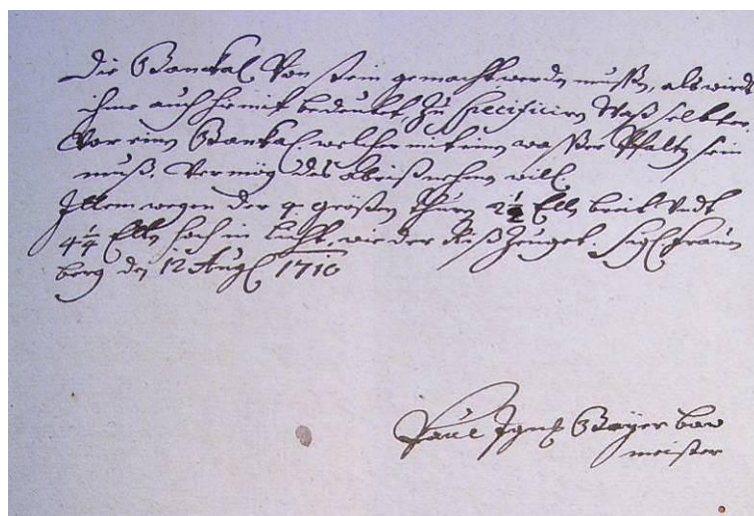 die Banckal Von stein gemacht werden mussen, als wirdt
ihme auch hiemit bedeutet, Zu specificirn Waß selbter
Vor einen Banckal welcher mit einen wasser Pfaltz sein
muß. Vermög des abriß nehmen will.
Ittem wegen der 4 großen thurn 2 1/2 Elln breit Vndt
4 1/4 Elln hoch in Licht, wie der Riß Zeuget. Sigl. Fraun
berg den 12 Aug 1710
Paul Ignatz Bayer baw
meister